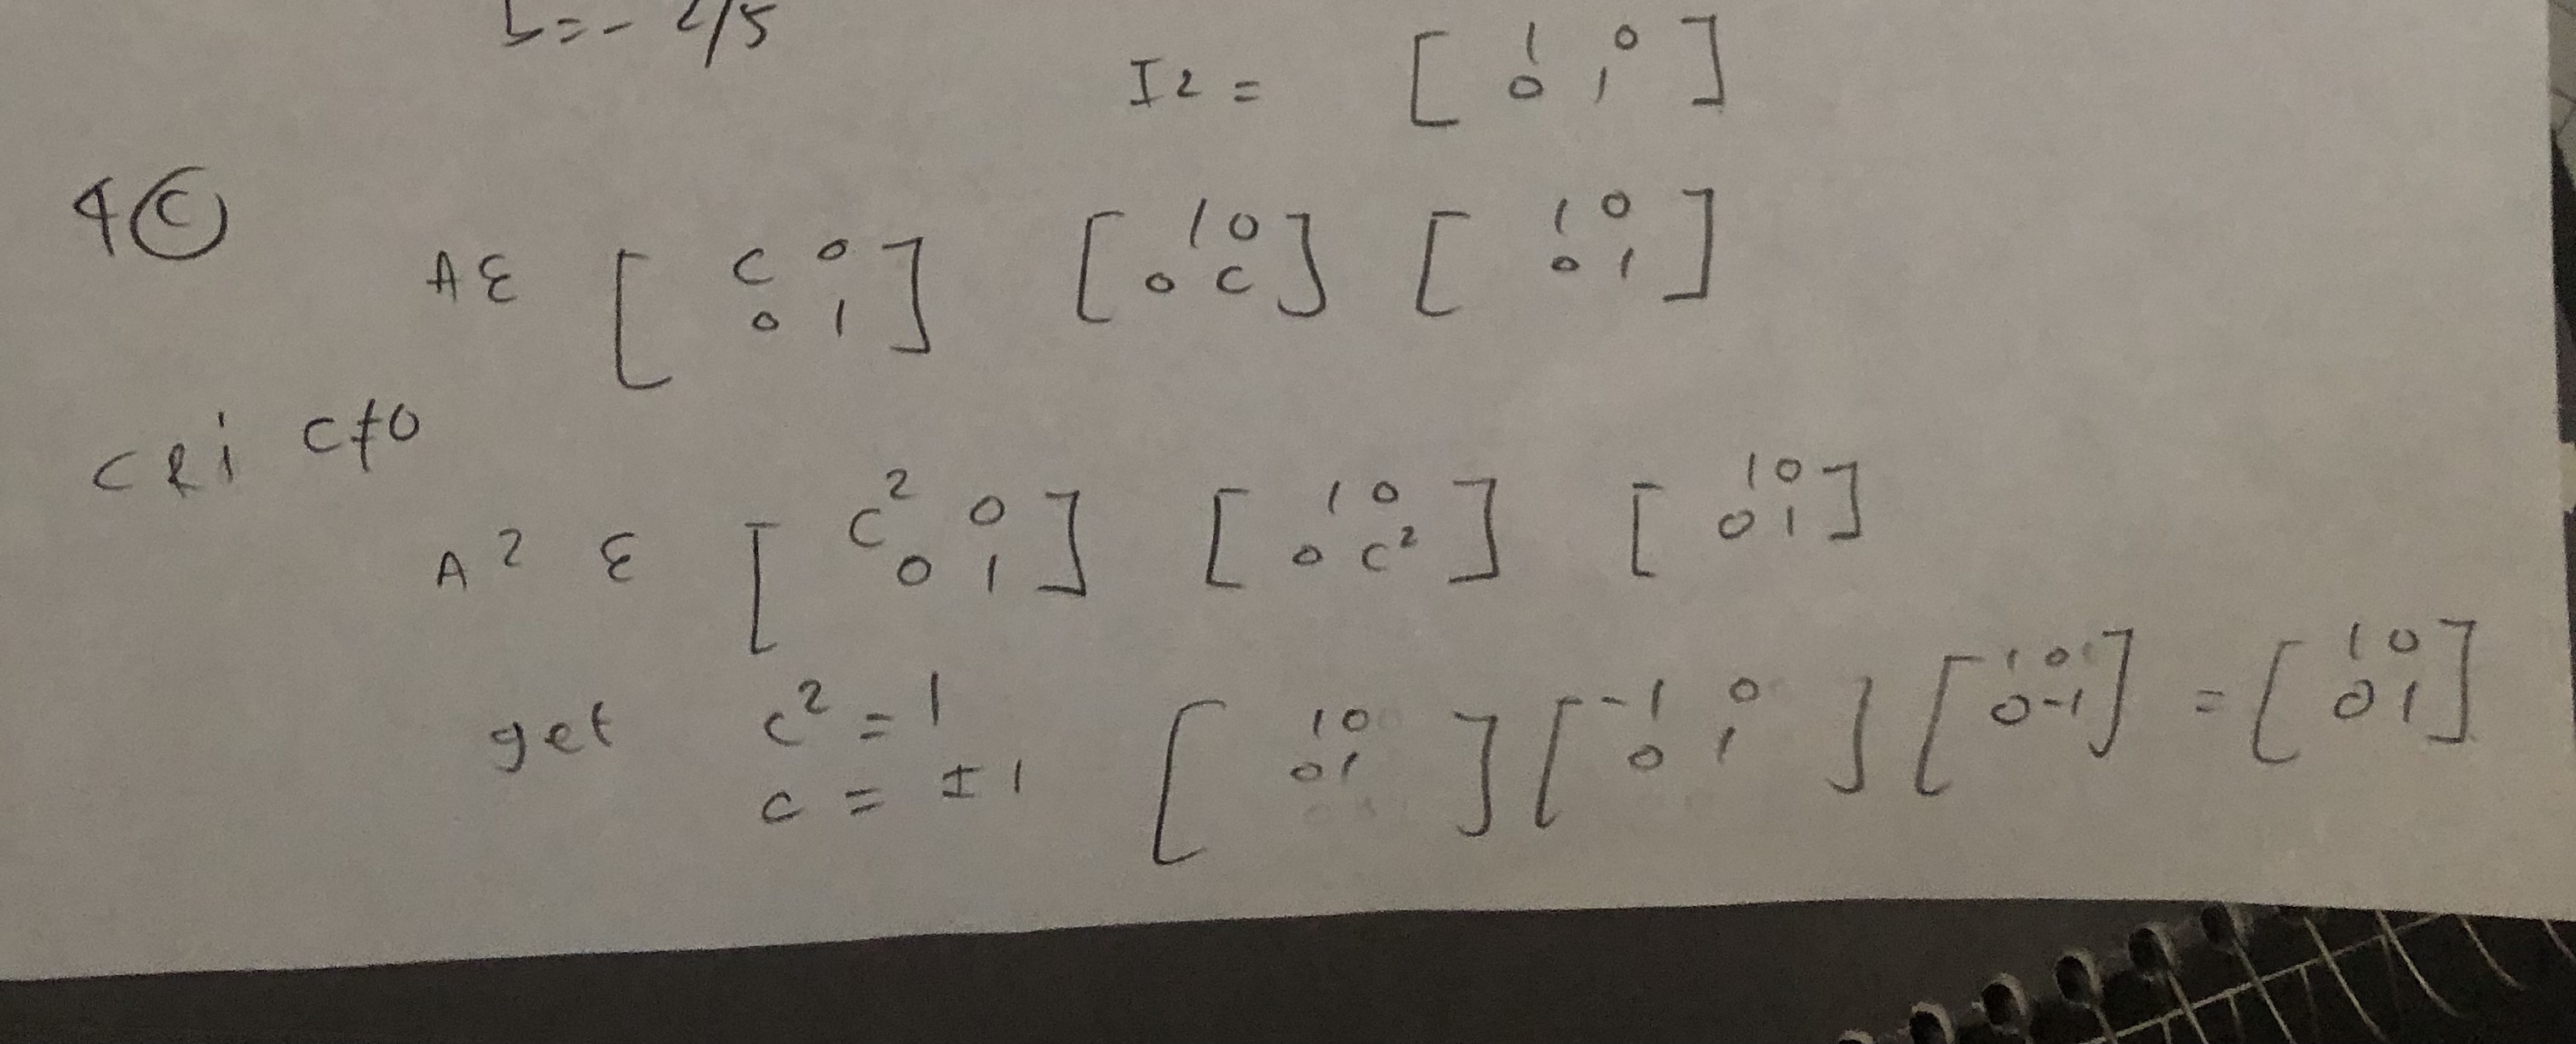 b = - 2/5
I2 = [ 1 0 0 1 ]
4 (C)
A ε [ C 0 0 1 ] [ 1 0 0 C ] [ 1 0 0 1 ]
C R i C ≠ 0
A 2 ε [ C² 0 0 1 ] [ 1 0 0 C² ] [ 1 0 0 1 ]
get c² = 1
c = ± 1 [ 1 0 0 1 ] [ -1 0 0 1 ] [ 1 0 0 -1 ] = [ 1 0 0 1 ]